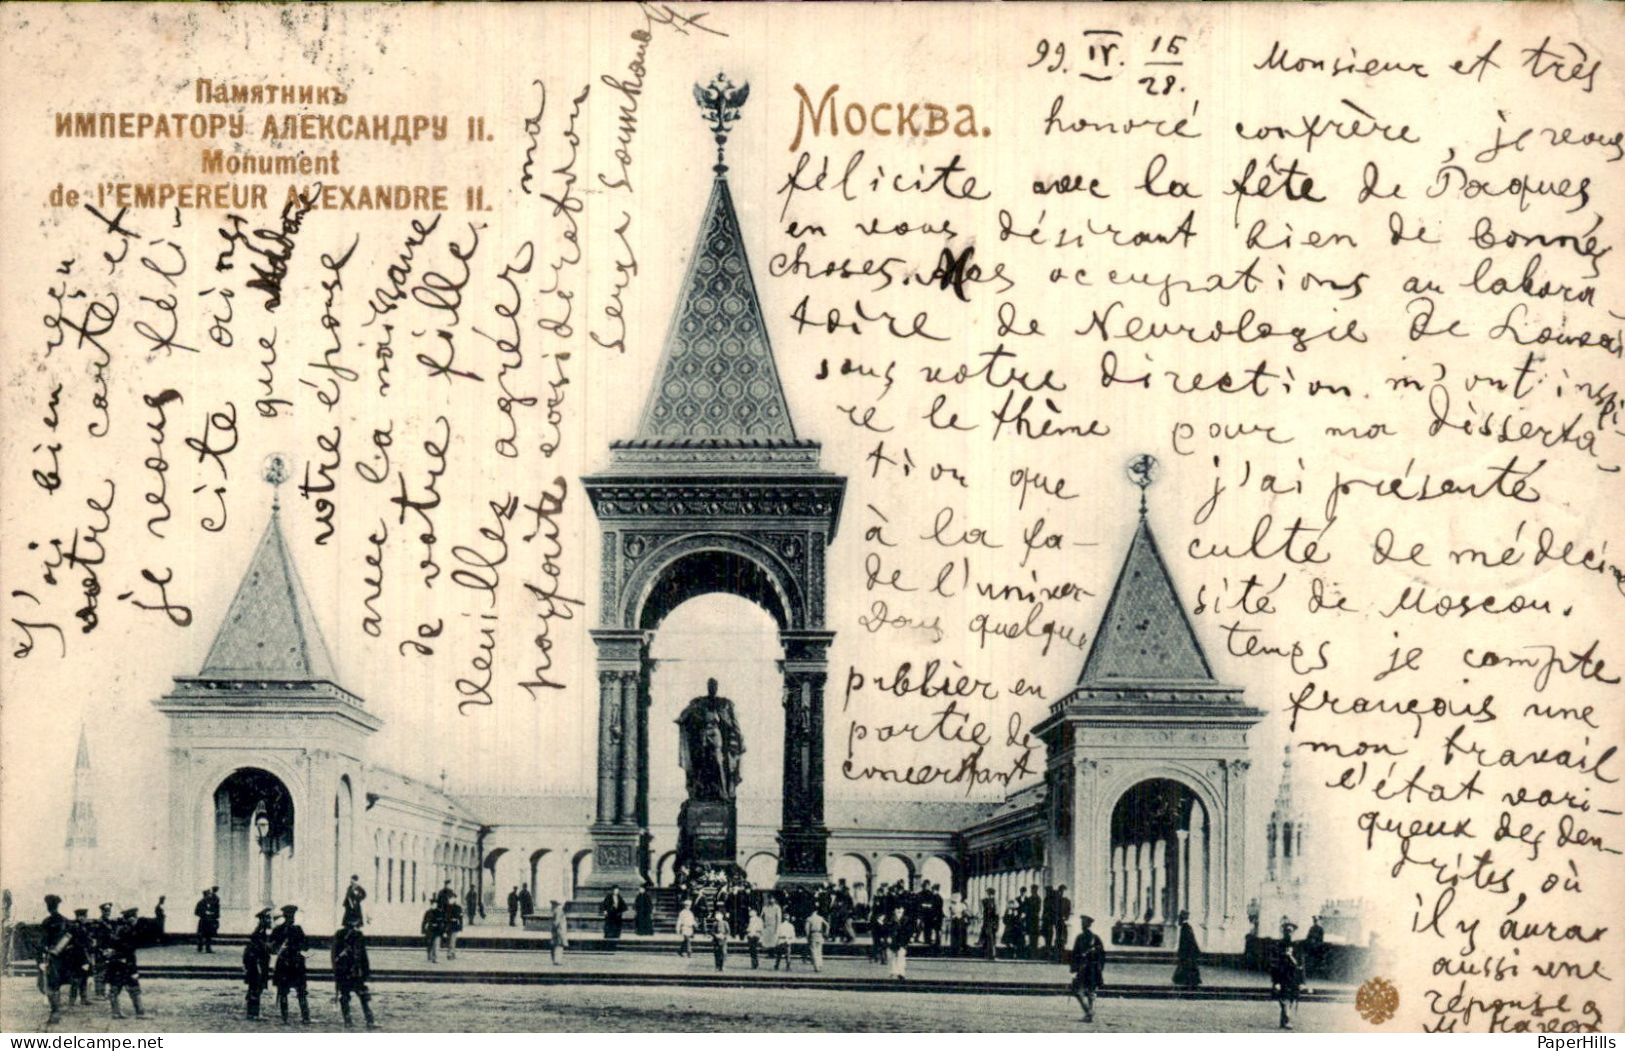 Памятникъ
ИМПЕРАТОРУ АЛЕКСАНДРУ II.
Monument
de l'EMPEREUR ALEXANDRE II.
Москва.
99. IV. 16/28.
Monsieur et très
honoré confrère, je vous
félicite avec la fête de Pâques,
en vous désirant bien de bonnes
choses. Mes occupations au labora
toire de Neurologie de Louvain
sous votre direction m'ont inspi-
ré le thème pour ma disserta-
tion que j'ai présenté
à la fa- culté de médecine
de l'univer- sité de Moscou.
Dans quelque temps je compte
publier en français une
partie de mon travail
concernant l'état vari-
queux des den-
drites, où
il y aura
aussi une
réponse a
M.
J'ai bien reçu
votre carte et
je vous féli-
cite ainsi
que Madame
votre épouse
avec la naissance
de votre fille.
Veuillez agréer ma
parfaite considération
Serge Soukhanoff
PaperHills